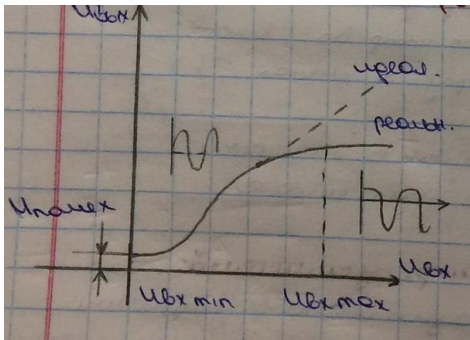 Uвых
идеал.
реальн.
Uпомех
Uвх
Uвх min
Uвх max